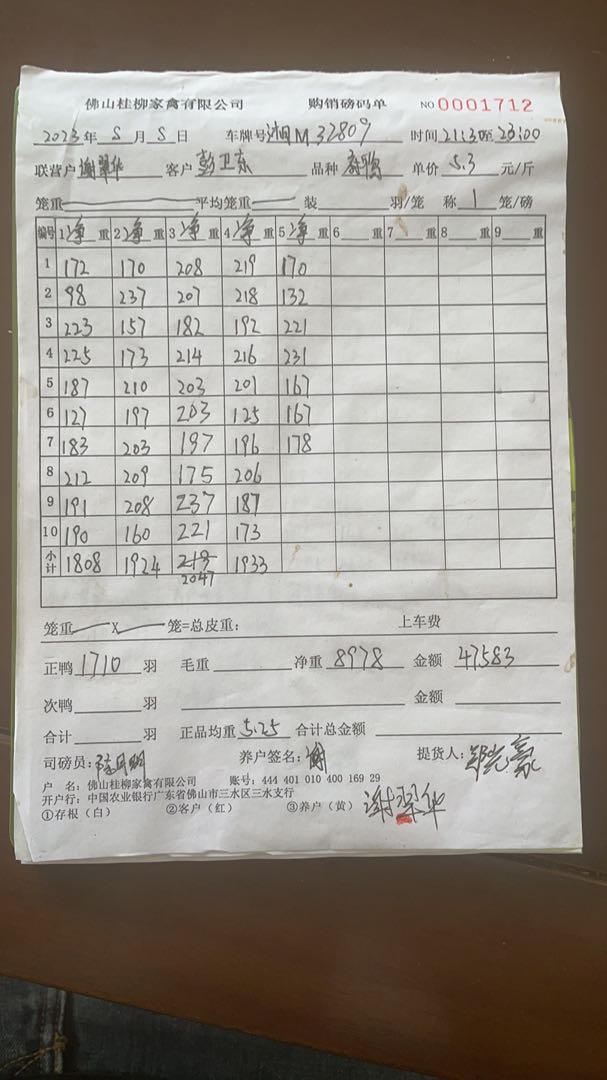 佛山桂柳家禽有限公司 购销磅码单 NO 0001712
2023年 5月 5日 车牌号 湘M32809 时间 21:30至 23:00
联营户 谢翠华 客户 彭卫东 品种 单价 5.3 元/斤
笼重 平均笼重 装 羽/笼 称 1 笼/磅
编号 1净重 2净重 3净重 4净重 5净重 6 重 7 重 8 重 9 重
1 172 170 208 219 170
2 98 237 207 218 132
3 223 157 182 192 221
4 225 173 214 216 231
5 187 210 203 201 167
6 127 197 203 125 167
7 183 203 197 196 178
8 212 209 175 206
9 191 208 237 187
10 190 160 221 173
小计 1808 1924 2047 1933
笼重 X 笼=总皮重: 上车费
正鸭 1710 羽 毛重 净重 8978 金额 47583
次鸭 羽 金额
合计 羽 正品均重 5.25 合计总金额
司磅员: 养户签名: 谢 提货人:
户 名: 佛山桂柳家禽有限公司 账号: 444 401 010 400 169 29
开户行: 中国农业银行广东省佛山市三水区三水支行
①存根(白) ②客户(红) ③养户(黄) 谢翠华